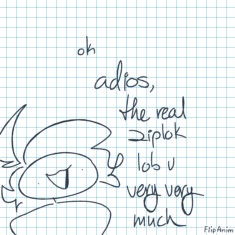 oh
adios,
the real
ziplok
lob u
very very
much
FlipAnim